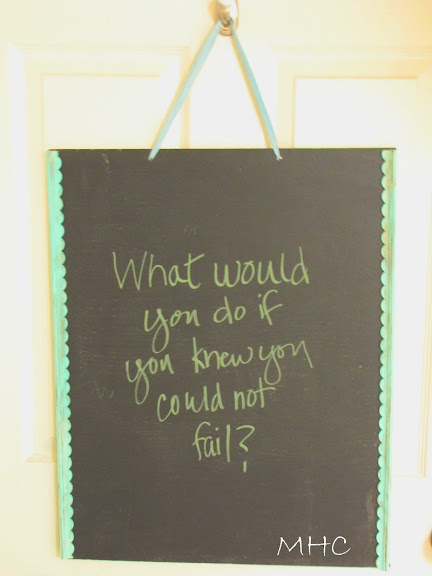 What would
you do if
you knew you
could not
fail?
MHC